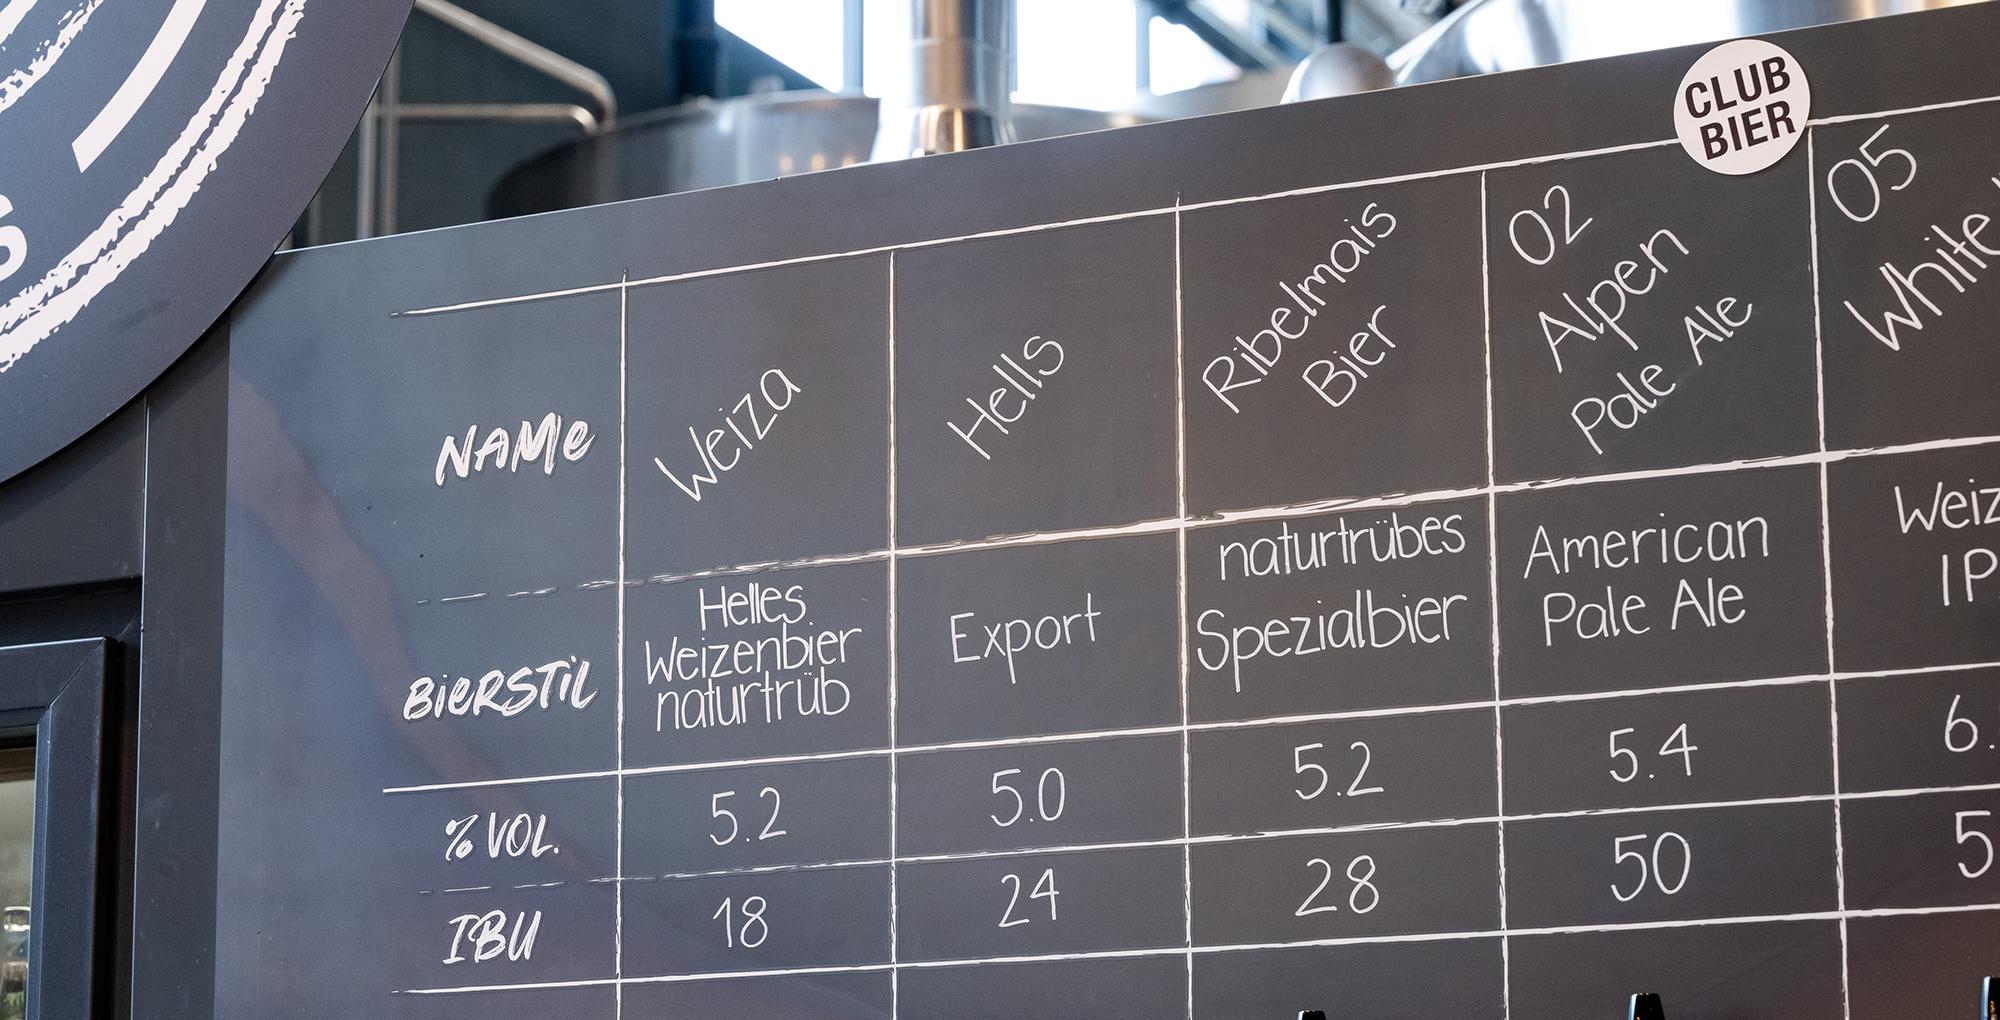 S
CLUB
BIER
NAMe
Weiza
Hells
Ribelmais
Bier
02
Alpen
Pale Ale
05
White
BieRSTiL
Helles
Weizenbier
naturtrüb
Export
naturtrübes
Spezialbier
American
Pale Ale
Weiz
IP
% VOL.
5.2
5.0
5.2
5.4
6.
IBU
18
24
28
50
5